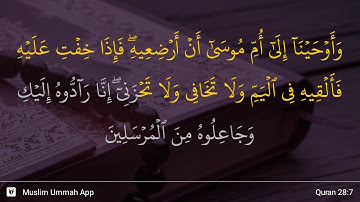 وَأَوْحَيْنَآ إِلَىٰٓ أُمِّ مُوسَىٰٓ أَنْ أَرْضِعِيهِ ۖ فَإِذَا خِفْتِ عَلَيْهِ
فَأَلْقِيهِ فِى ٱلْيَمِّ وَلَا تَخَافِى وَلَا تَحْزَنِىٓ ۖ إِنَّا رَآدُّوهُ إِلَيْكِ
وَجَاعِلُوهُ مِنَ ٱلْمُرْسَلِينَ
Muslim Ummah App
Quran 28:7